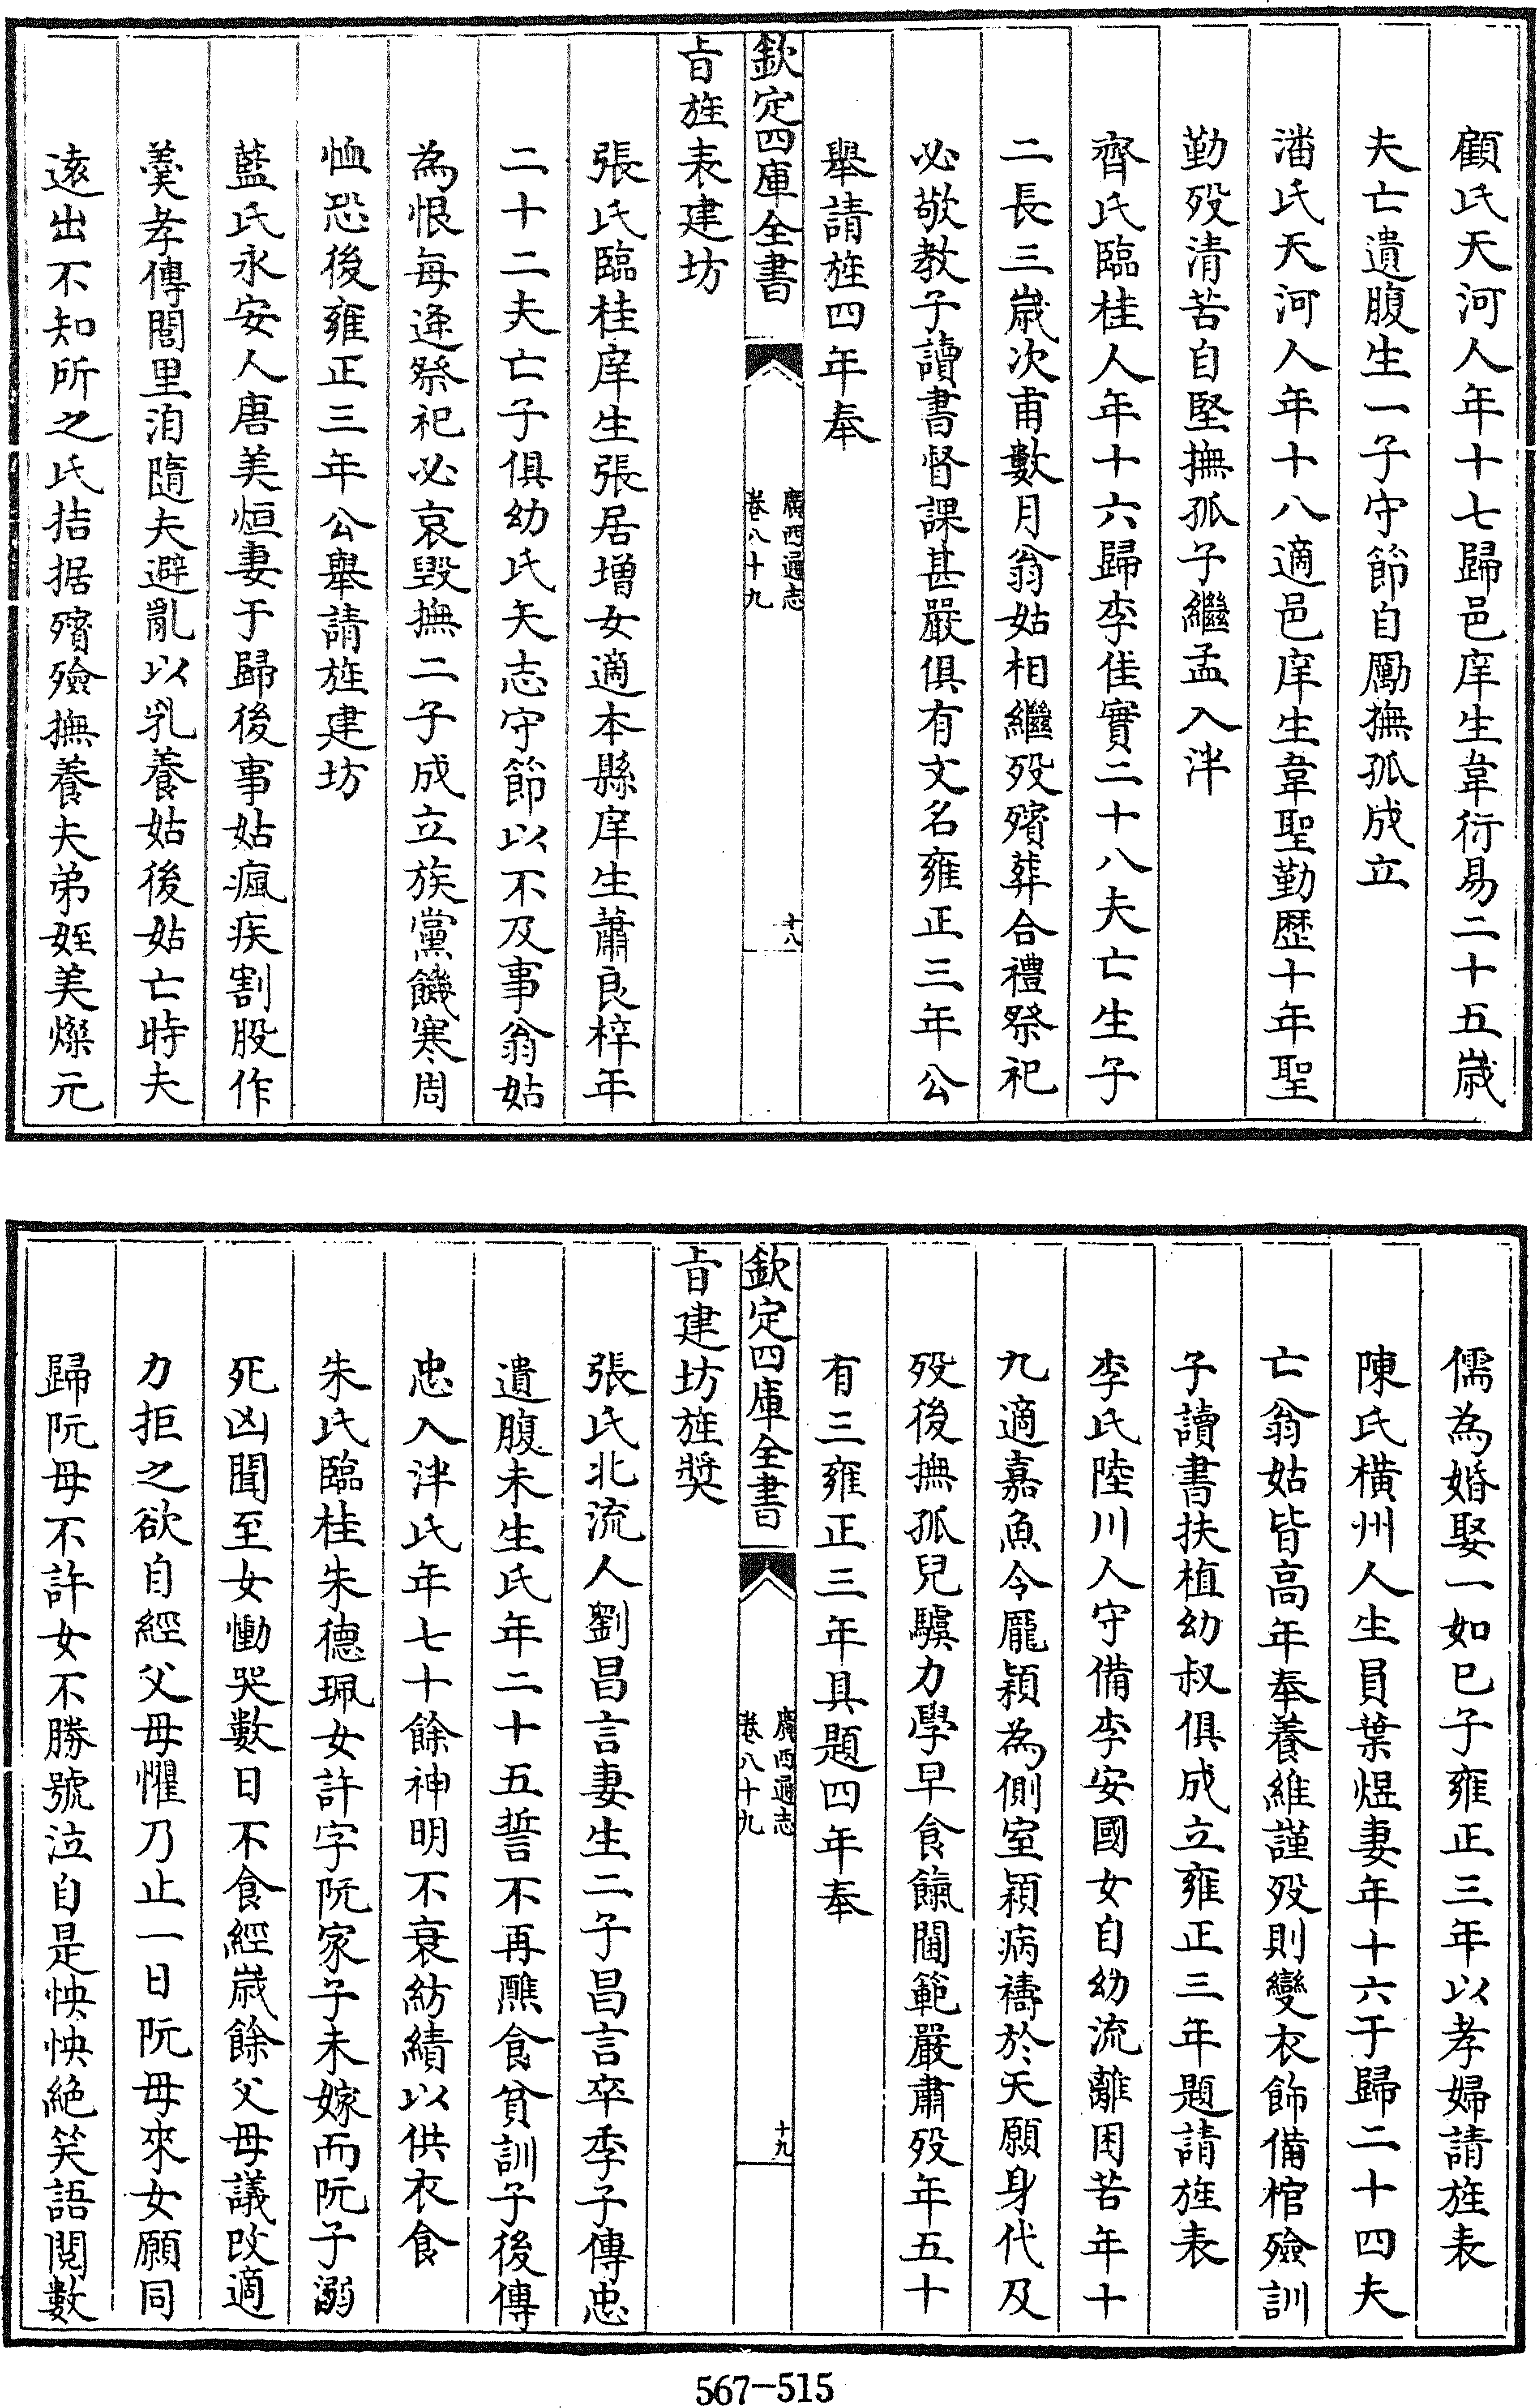 顧氏天河人年十七歸邑庠生韋衍易二十五嵗
夫亡遺腹生一子守節自勵撫孤成立
潘氏天河人年十八適邑庠生韋聖勤歴十年聖
勤殁清苦自堅撫孤子繼孟入泮
齊氏臨桂人年十六歸李佳實二十八夫亡生子
二長三嵗次甫數月翁姑相繼殁殯葬合禮祭祀
必敬教子讀書督課甚嚴俱有文名雍正三年公
舉請旌四年奉
欽定四庫全書
廣西通志
卷八十九
十八
旨旌表建坊
張氏臨桂庠生張居增女適本縣庠生蕭良梓年
二十二夫亡子俱幼氏矢志守節以不及事翁姑
為恨每逢祭祀必哀毀撫二子成立族黨饑寒周
恤恐後雍正三年公舉請旌建坊
藍氏永安人唐美烜妻于歸後事姑瘋疾割股作
羮孝傳閭里洎隨夫避亂以乳養姑後姑亡時夫
逺出不知所之氏拮据殯殮撫養夫弟姪美燦元
儒為婚娶一如已子雍正三年以孝婦請旌表
陳氏横州人生員葉煜妻年十六于歸二十四夫
亡翁姑皆高年奉養維謹殁則變衣飾備棺殮訓
子讀書扶植幼叔俱成立雍正三年題請旌表
李氏陸川人守備李安國女自幼流離困苦年十
九適嘉魚令龎穎為側室穎病禱於天願身代及
殁後撫孤兒騻力學早食餼閫範嚴肅殁年五十
有三雍正三年具題四年奉
欽定四庫全書
廣西通志
卷八十九
十九
旨建坊旌奬
張氏北流人劉昌言妻生二子昌言卒季子傳忠
遺腹未生氏年二十五誓不再醮食貧訓子後傳
忠入泮氏年七十餘神明不衰紡績以供衣食
朱氏臨桂朱德珮女許字阮家子未嫁而阮子溺
死凶聞至女慟哭數日不食經嵗餘父母議改適
力拒之欲自經父母懼乃止一日阮母來女願同
歸阮母不許女不勝號泣自是怏怏絶笑語閲數
567-515